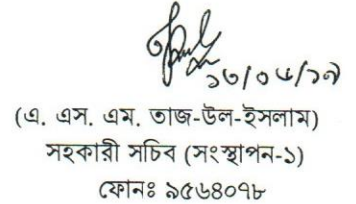 ১৩/০৫/১৭
(এ. এস. এম. তাজ-উল-ইসলাম)
সহকারী সচিব (সংস্থাপন-১)
ফোনঃ ৯৫৬৪০৭৮